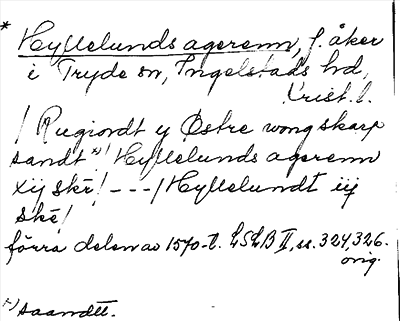 * Hyllelunds agerenn, f. åker
i Tryde sn, Ingelstads hd,
Krist. l.
/ Rugiordt y Østre wong skarp
sandt x)/ Hyllelunds agerenn
xij skē! - - - / Hyllelundt iij
skē!
förra delen av 1570-t. LSLB II, ss. 324, 326.
orig.
x) saandtt.